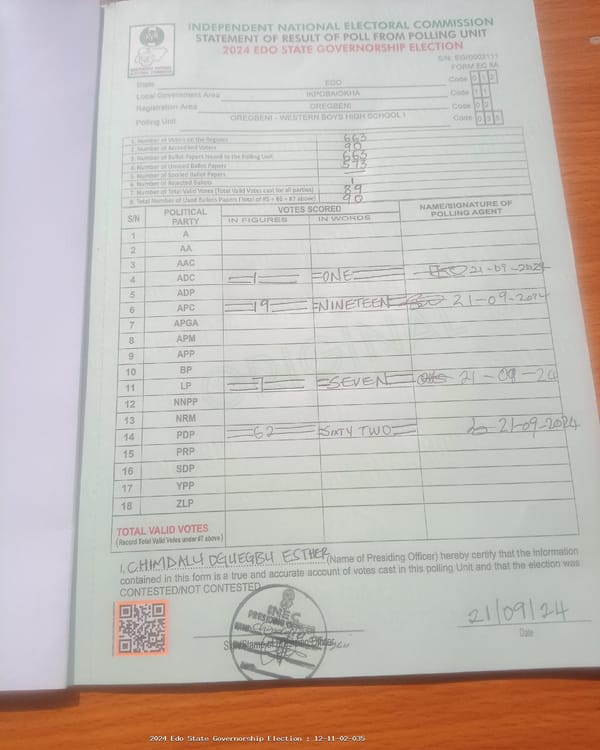 INDEPENDENT NATIONAL ELECTORAL COMMISSION
STATEMENT OF RESULT OF POLL FROM POLLING UNIT
2024 EDO STATE GOVERNORSHIP ELECTION
S/N: EG/0003111
FORM EC 8A
State EDO Code 0 1 2
Local Government Area IKPOBA/OKHA Code 1 1
Registration Area OREGBENI Code 0 2
Polling Unit OREGBENI - WESTERN BOYS HIGH SCHOOL I Code 0 3 5
1. Number of Voters on the Register 663
2. Number of Accredited Voters 90
3. Number of Ballot Papers Issued to the Polling Unit 663
4. Number of Unused Ballot Papers 573
5. Number of Spoiled Ballot Papers —
6. Number of Rejected Ballots 1
7. Number of Total Valid Votes (Total Valid Votes cast for all parties) 89
8. Total Number of Used Ballots Papers (Total of #5 + #6 + #7 above) 90
S/N POLITICAL PARTY VOTES SCORED NAME/SIGNATURE OF POLLING AGENT
IN FIGURES IN WORDS
1 A
2 AA
3 AAC
4 ADC 1 ONE 21-09-2024
5 ADP
6 APC 19 NINETEEN 21-09-2024
7 APGA
8 APM
9 APP
10 BP
11 LP 7 SEVEN 21-09-24
12 NNPP
13 NRM
14 PDP 62 SIXTY TWO 21-09-2024
15 PRP
16 SDP
17 YPP
18 ZLP
TOTAL VALID VOTES
(Record Total Valid Votes under #7 above)
I, CHIMDALU OGUEGBU ESTHER (Name of Presiding Officer) hereby certify that the information
contained in this form is a true and accurate account of votes cast in this polling Unit and that the election was
CONTESTED/NOT CONTESTED
INEC
PRESIDING OFFICER
21/09/24
Date
2024 Edo State Governorship Election : 12-11-02-035